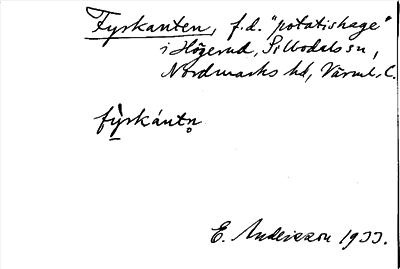 Fyrkanten, f.d. "potatishage"
i Högerud, Sillbodals sn,
Nordmarks hd, Värml. l.
fỳ̱rkántn̥
E. Andersson 1933.